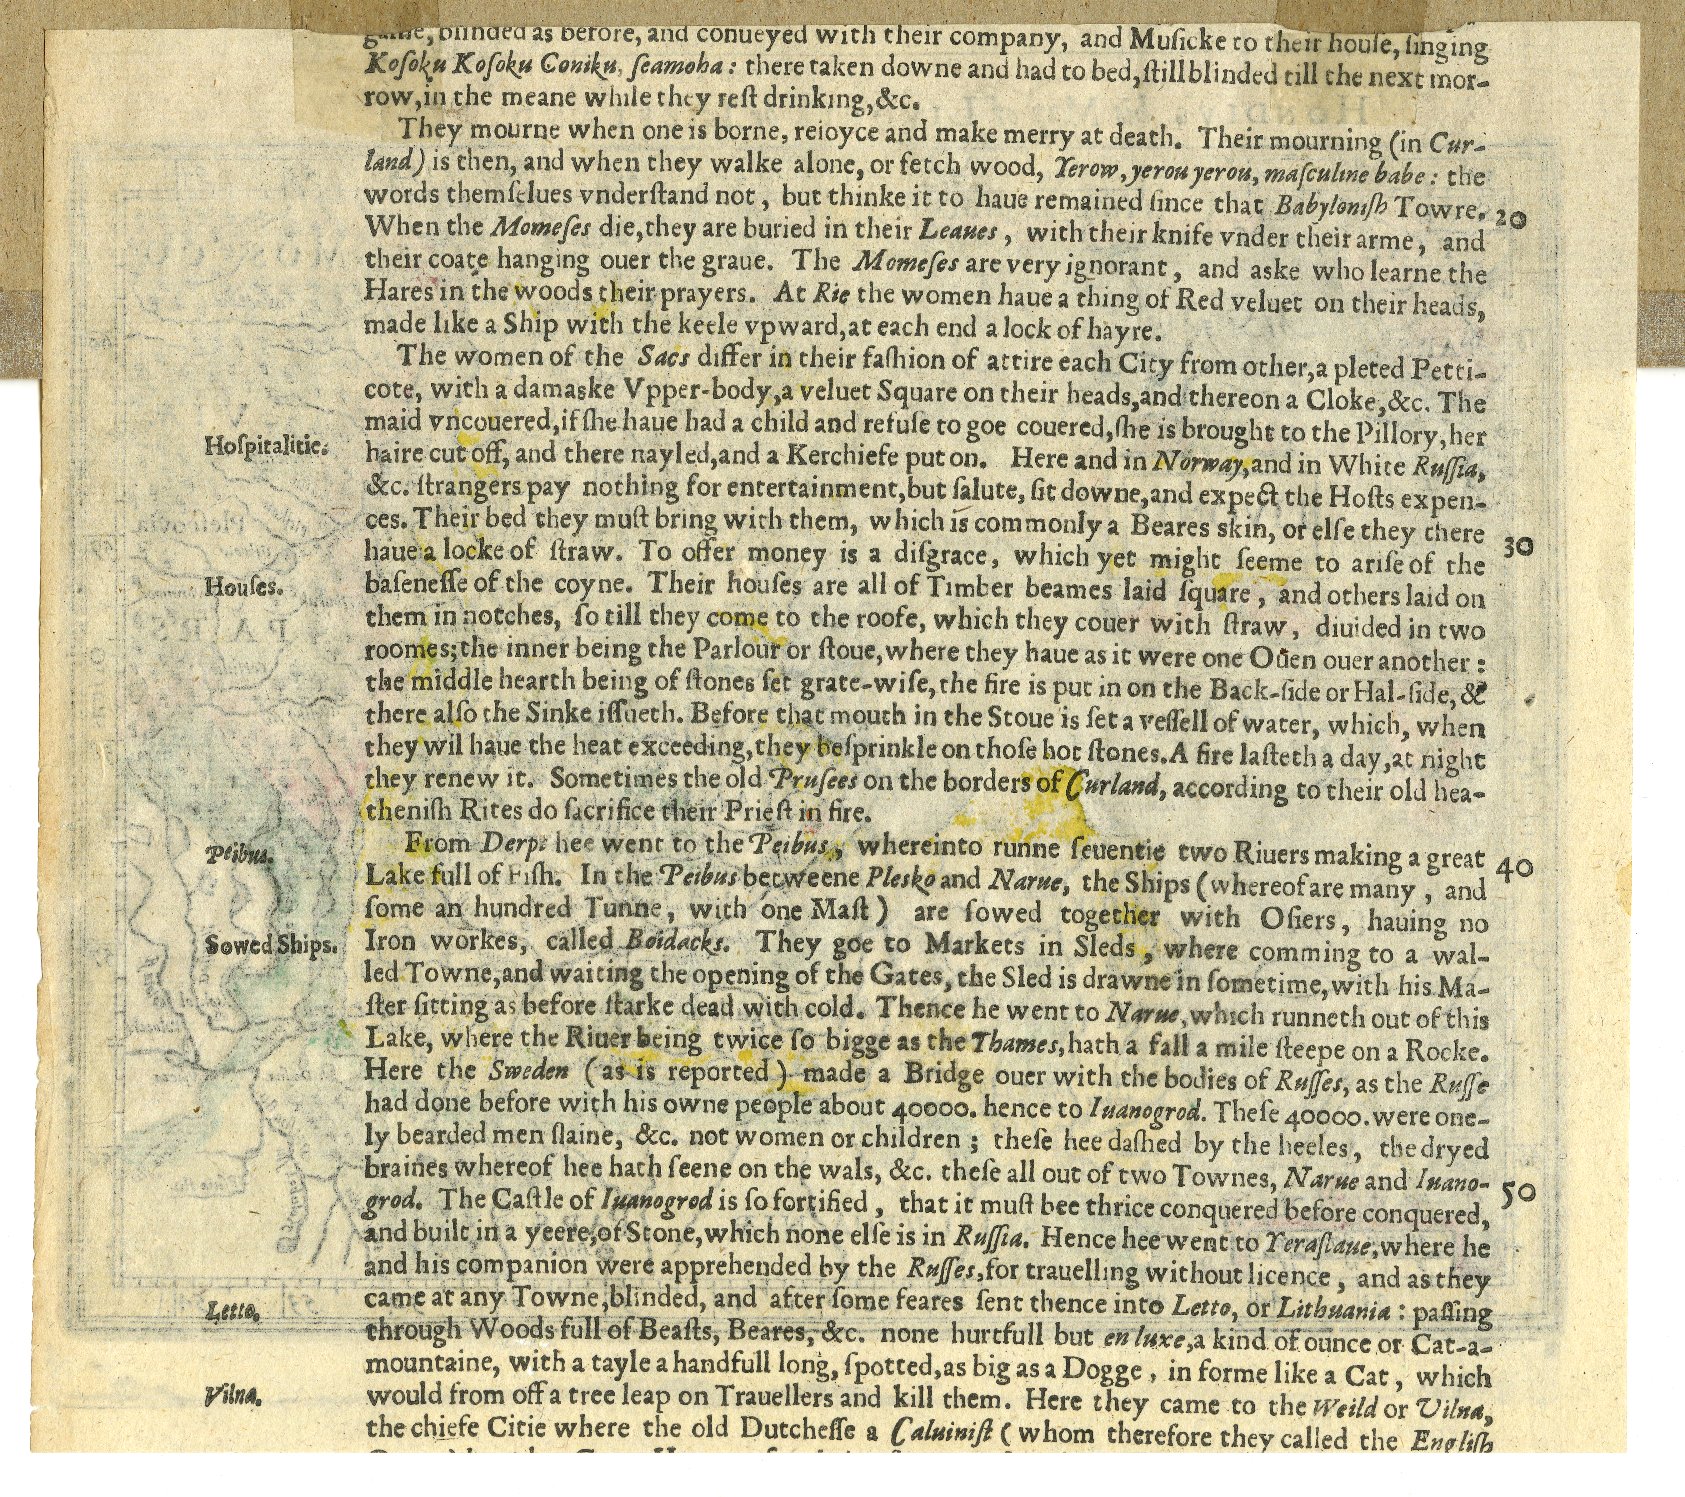 game, blinded as before, and conueyed with their company, and Muſicke to their houſe, ſinging
Koſoku Koſoku Coniku, ſeamoha: there taken downe and had to bed, ſtill blinded till the next mor-
row, in the meane while they reſt drinking, &c.
They mourne when one is borne, reioyce and make merry at death. Their mourning (in Cur-
land) is then, and when they walke alone, or fetch wood, Yerow, yerou yerou, maſculine babe: the
words themſelues vnderſtand not, but thinke it to haue remained ſince that Babyloniſh Towre. 20
When the Momeſes die, they are buried in their Leaues, with their knife vnder their arme, and
their coate hanging ouer the graue. The Momeſes are very ignorant, and aske who learne the
Hares in the woods their prayers. At Rie the women haue a thing of Red veluet on their heads,
made like a Ship with the keele vpward, at each end a lock of hayre.
The women of the Sacs differ in their faſhion of attire each City from other, a pleted Petti-
cote, with a damaske Vpper-body, a veluet Square on their heads, and thereon a Cloke, &c. The
maid vncouered, if ſhe haue had a child and refuſe to goe couered, ſhe is brought to the Pillory, her
Hoſpitalitie. haire cut off, and there nayled, and a Kerchiefe put on. Here and in Norway, and in White Ruſſia,
&c. ſtrangers pay nothing for entertainment, but ſalute, ſit downe, and expect the Hoſts expen-
ces. Their bed they muſt bring with them, which is commonly a Beares skin, or elſe they there
haue a locke of ſtraw. To offer money is a diſgrace, which yet might ſeeme to ariſe of the 30
Houſes. baſeneſſe of the coyne. Their houſes are all of Timber beames laid ſquare, and others laid on
them in notches, ſo till they come to the roofe, which they couer with ſtraw, diuided in two
roomes; the inner being the Parlour or ſtoue, where they haue as it were one Ouen ouer another:
the middle hearth being of ſtones ſet grate-wiſe, the fire is put in on the Back-ſide or Hal-ſide, &
there alſo the Sinke iſſueth. Before that mouth in the Stoue is ſet a veſſell of water, which, when
they wil haue the heat exceeding, they beſprinkle on thoſe hot ſtones. A fire laſteth a day, at night
they renew it. Sometimes the old Pruſees on the borders of Curland, according to their old hea-
theniſh Rites do ſacrifice their Prieſt in fire.
Peibus. From Derpt hee went to the Peibus, whereinto runne ſeuentie two Riuers making a great 40
Lake full of Fiſh. In the Peibus betweene Plesko and Narue, the Ships (whereof are many, and
ſome an hundred Tunne, with one Maſt) are ſowed together with Oſiers, hauing no
Sowed Ships. Iron workes, called Boidacks. They goe to Markets in Sleds, where comming to a wal-
led Towne, and waiting the opening of the Gates, the Sled is drawne in ſometime, with his Ma-
ſter ſitting as before ſtarke dead with cold. Thence he went to Narue, which runneth out of this
Lake, where the Riuer being twice ſo bigge as the Thames, hath a fall a mile ſteepe on a Rocke.
Here the Sweden (as is reported) made a Bridge ouer with the bodies of Ruſſes, as the Ruſſe
had done before with his owne people about 40000. hence to Iuanogrod. Theſe 40000. were one-
ly bearded men ſlaine, &c. not women or children; theſe hee daſhed by the heeles, the dryed
braines whereof hee hath ſeene on the wals, &c. theſe all out of two Townes, Narue and Iuano-
grod. The Caſtle of Iuanogrod is ſo fortified, that it muſt bee thrice conquered before conquered, 50
and built in a yeere, of Stone, which none elſe is in Ruſſia. Hence hee went to Yeraſlaue, where he
and his companion were apprehended by the Ruſſes, for trauelling without licence, and as they
Letto. came at any Towne, blinded, and after ſome feares ſent thence into Letto, or Lithuania: paſſing
through Woods full of Beaſts, Beares, &c. none hurtfull but en luxe, a kind of ounce or Cat-a-
mountaine, with a tayle a handfull long, ſpotted, as big as a Dogge, in forme like a Cat, which
Vilna. would from off a tree leap on Trauellers and kill them. Here they came to the Weild or Vilna,
the chiefe Citie where the old Dutcheſſe a Caluiniſt (whom therefore they called the Engliſh